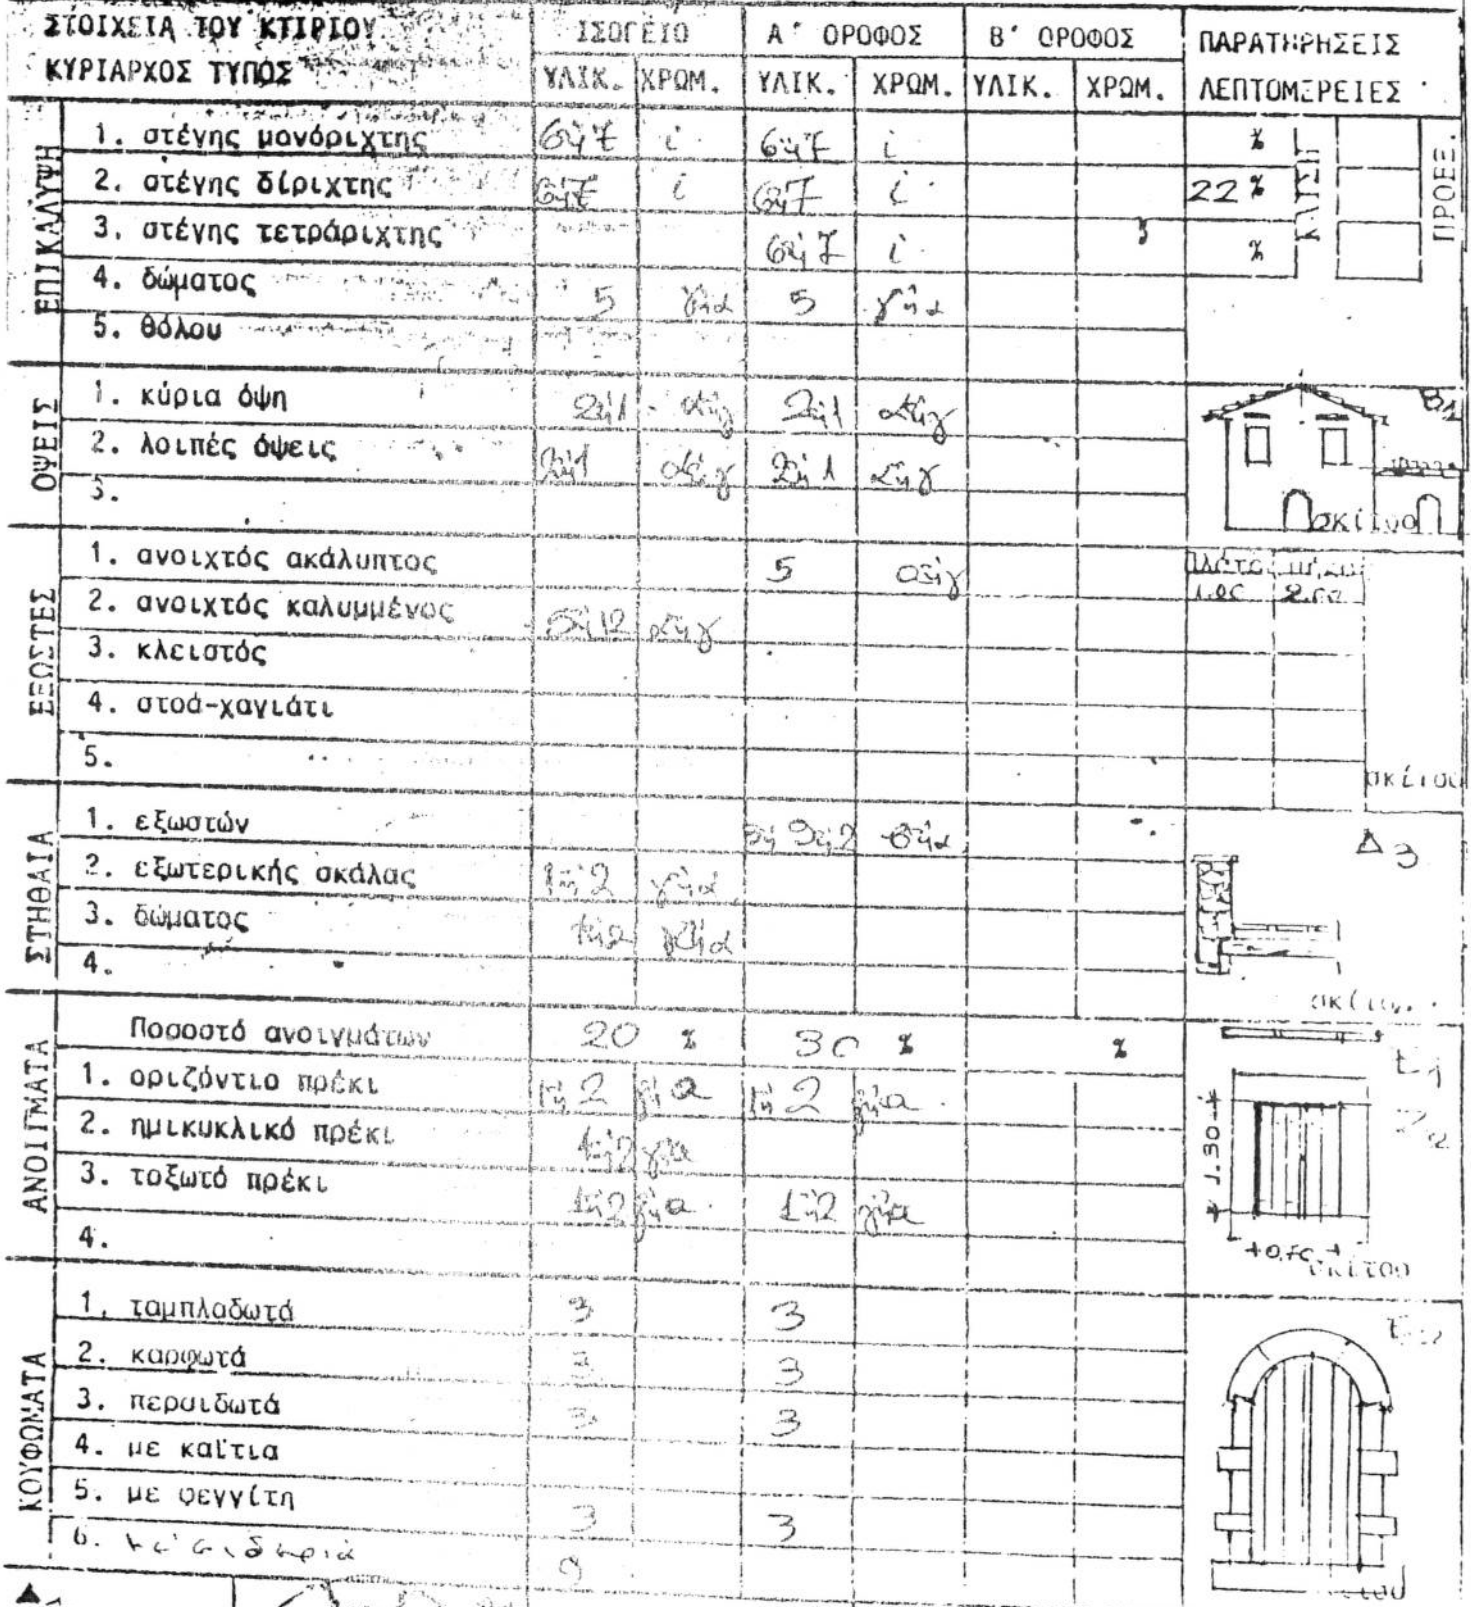 ΣΤΟΙΧΕΙΑ ΤΟΥ ΚΤΙΡΙΟΥ ΙΣΟΓΕΙΟ Α' ΟΡΟΦΟΣ Β' ΟΡΟΦΟΣ ΠΑΡΑΤΗΡΗΣΕΙΣ
ΚΥΡΙΑΡΧΟΣ ΤΥΠΟΣ ΥΛΙΚ. ΧΡΩΜ. ΥΛΙΚ. ΧΡΩΜ. ΥΛΙΚ. ΧΡΩΜ. ΛΕΠΤΟΜΕΡΕΙΕΣ
ΕΠΙΚΑΛΥΨΗ
1. στέγης μονόριχτης 6ή7 i 6ή7 i % ΚΛΙΣΗ ΠΡΟΕΞ.
2. στέγης δίριχτης 6ή7 i 6ή7 i 22 %
3. στέγης τετράριχτης 6ή7 i %
4. δώματος 5 γήα 5 γήα
5. θόλου
ΟΨΕΙΣ
1. κύρια όψη 2ή1 αήγ 2ή1 αήγ Β1
2. λοιπές όψεις 2ή1 αήγ 2ή1 αήγ
3.
σκίτσο
ΕΞΩΣΤΕΣ
1. ανοιχτός ακάλυπτος 5 αήγ πλάτος μήκος
2. ανοιχτός καλυμμένος 5ή12 αήγ
3. κλειστός
4. στοά-χαγιάτι
5.
σκίτσο
ΣΤΗΘΑΙΑ
1. εξωστών 5ή9ή2 Δ3
2. εξωτερικής σκάλας 1ή2 γήα
3. δώματος 1ή2 γήα
4.
σκίτσο
ΑΝΟΙΓΜΑΤΑ
Ποσοστό ανοιγμάτων 20 % 30 % %
1. οριζόντιο πρέκι 1ή2 γήα 1ή2 γήα Ε1
2. ημικυκλικό πρέκι 1ή2 γήα 1.30
3. τοξωτό πρέκι 1ή2 γήα 1ή2 γήα
4.
σκίτσο
ΚΟΥΦΩΜΑΤΑ
1. ταμπλαδωτά 3 3
2. καρφωτά 3 3
3. περσιδωτά 3 3
4. με καΐτια
5. με φεγγίτη 3 3
6. 9